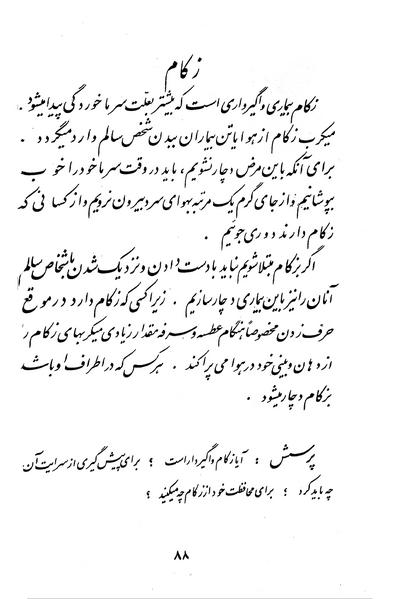 زکام
زکام بیماری واگیرداری است که بیشتر بعلّت سرما خوردگی پیدا میشود .
میکرب زکام از هوا یا تن بیماران ببدن شخص سالم وارد میگردد .
برای آنکه باین مرض دچار نشویم ، باید در وقت سرما خود را خوب
بپوشانیم و از جای گرم یک مرتبه بهوای سرد بیرون نرویم و از کسانی که
زکام دارند دوری جوئیم .
اگر بزکام مبتلا شویم نباید با دست دادن و نزدیک شدن باشخاص سالم
آنان را نیز باین بیماری دچار سازیم . زیرا کسی که زکام دارد در موقع
حرف زدن مخصوصاً هنگام عطسه و سرفه مقدار زیادی میکربهای زکام را
از دهان و بینی خود در هوا می پراکند . هر کس که در اطراف او باشد
بزکام دچار میشود .
پرسش : آیا زکام واگیردار است ؟ برای پیش گیری از سرایت آن
چه باید کرد ؟ برای محافظت خود از زکام چه میکنید ؟
۸۸